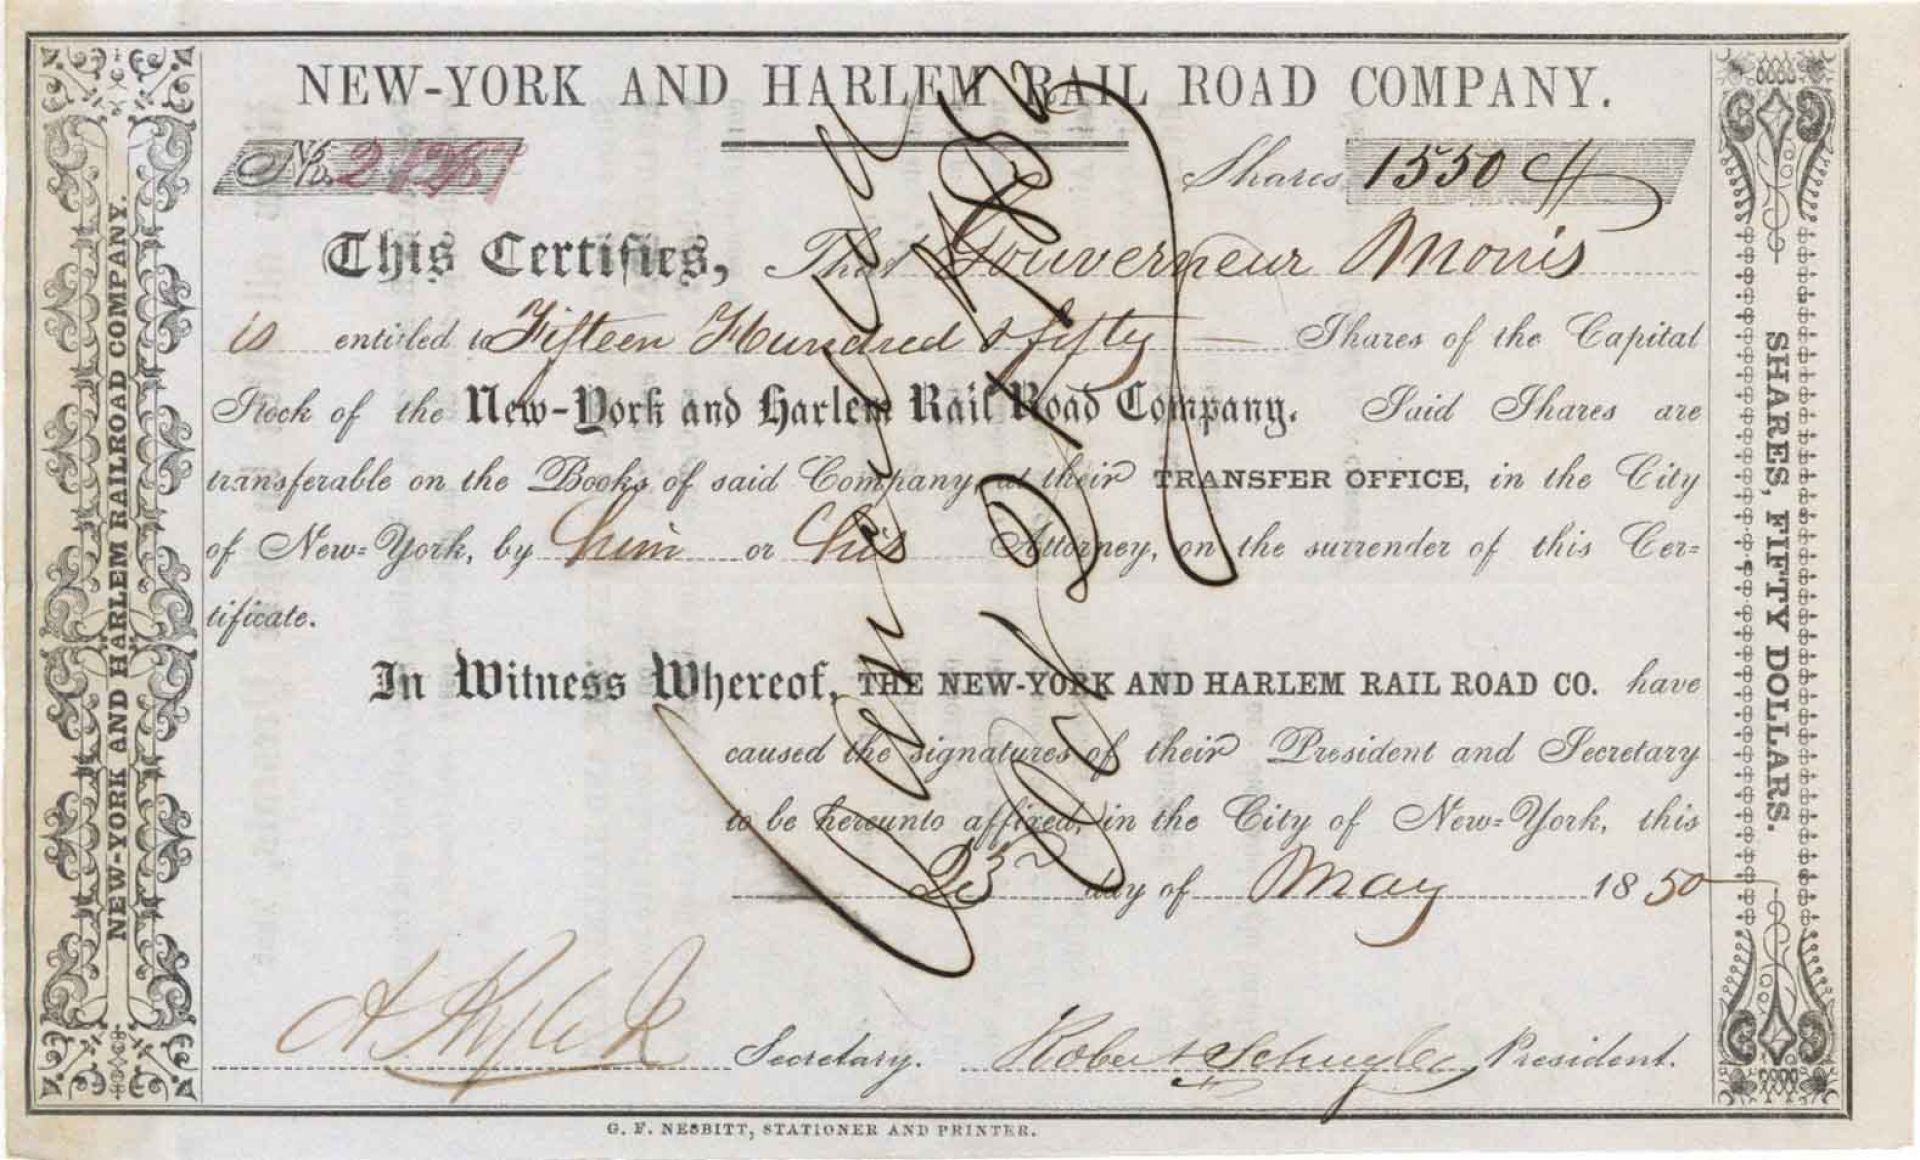 NEW-YORK AND HARLEM RAIL ROAD COMPANY.
No.
Shares 1550
This Certifies, That Gouverneur Morris
is entitled to Fifteen Hundred & fifty — Shares of the Capital
Stock of the New-York and Harlem Rail Road Company. Said Shares are
transferable on the Books of said Company, at their TRANSFER OFFICE, in the City
of New-York, by him or his Attorney, on the surrender of this Cer=
tificate.
In Witness Whereof, THE NEW-YORK AND HARLEM RAIL ROAD CO. have
caused the signatures of their President and Secretary
to be hereunto affixed, in the City of New-York, this
23 day of May 1850
Secretary. Robert Schuyler President.
G. F. NESBITT, STATIONER AND PRINTER.
NEW-YORK AND HARLEM RAILROAD COMPANY.
SHARES, FIFTY DOLLARS.
Cancelled